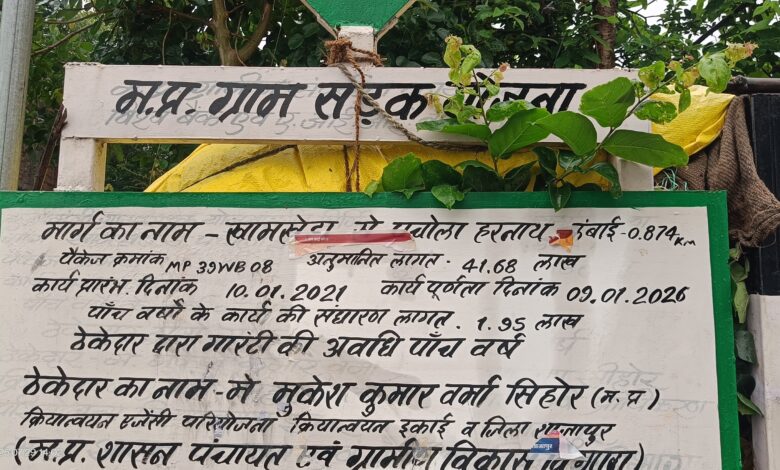 म.प्र. ग्राम सड़क योजना
मार्ग का नाम - खामखेड़ा से पचोला हरनाथ लंबाई-0.874 Km
पैकेज क्रमांक MP 39WB 08 अनुमानित लागत. 41.68 लाख
कार्य प्रारंभ. दिनांक 10.01.2021 कार्य पूर्णता दिनांक 09.01.2026
पाँच वर्षो के कार्य की संधारण लागत. 1.95 लाख
ठेकेदार द्वारा गारंटी की अवधि पाँच वर्ष
ठेकेदार का नाम-मे. मुकेश कुमार वर्मा सिहोर (म.प्र)
क्रियान्वयन एजेंसी परियोजना क्रियान्वयन इकाई व जिला शाजापुर
(म.प्र. शासन पंचायत एवं ग्रामीण विकास विभाग)